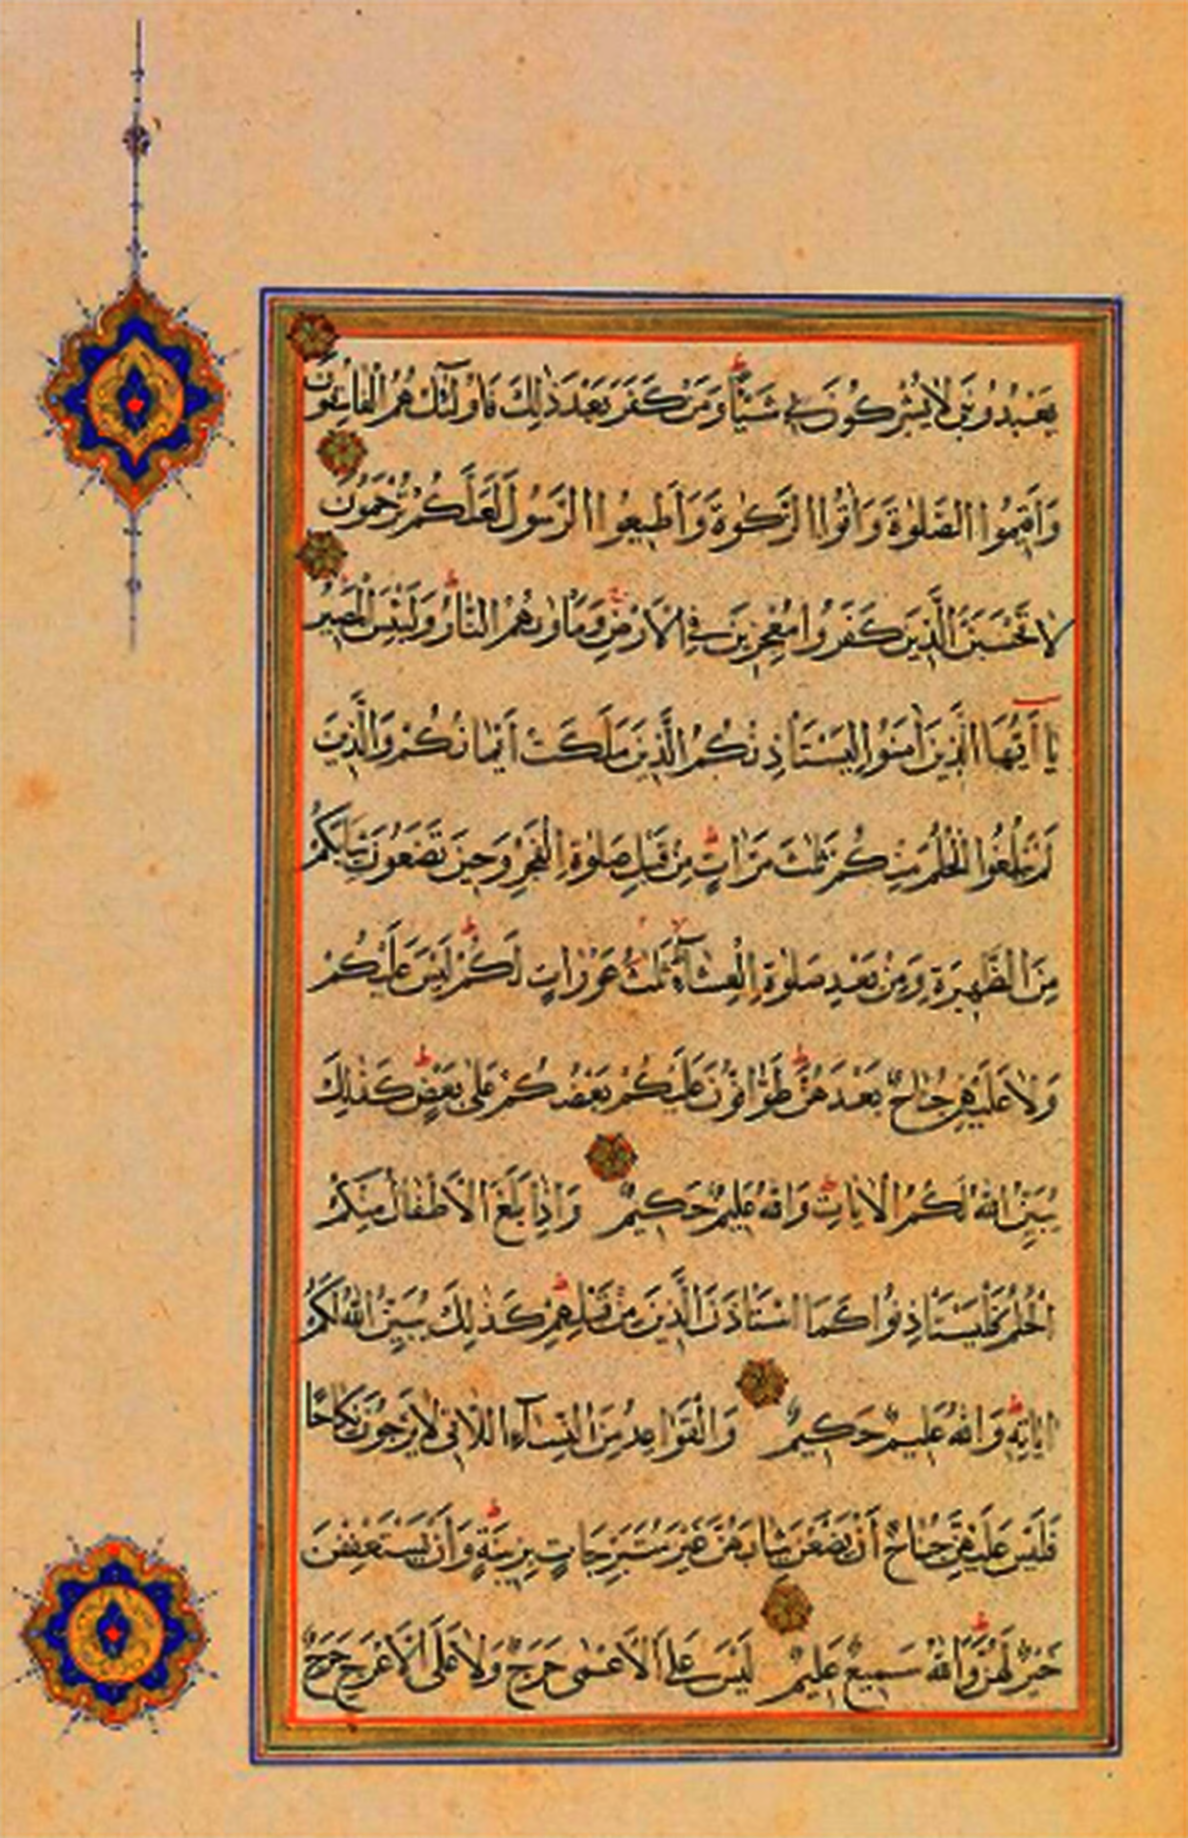 يَعْبُدُونَنِي لَا يُشْرِكُونَ بِي شَيْئًا ط وَمَنْ كَفَرَ بَعْدَ ذٰلِكَ فَاُولٰٓئِكَ هُمُ الْفَاسِقُونَ
وَاَقِيمُوا الصَّلٰوةَ وَاٰتُوا الزَّكٰوةَ وَاَطِيعُوا الرَّسُولَ لَعَلَّكُمْ تُرْحَمُونَ
لَا تَحْسَبَنَّ الَّذِينَ كَفَرُوا مُعْجِزِينَ فِي الْاَرْضِ وَمَاْوٰىهُمُ النَّارُ ط وَلَبِئْسَ الْمَصِيرُ
يَا اَيُّهَا الَّذِينَ اٰمَنُوا لِيَسْتَاْذِنْكُمُ الَّذِينَ مَلَكَتْ اَيْمَانُكُمْ وَالَّذِينَ
لَمْ يَبْلُغُوا الْحُلُمَ مِنْكُمْ ثَلٰثَ مَرَّاتٍ ط مِنْ قَبْلِ صَلٰوةِ الْفَجْرِ وَحِينَ تَضَعُونَ ثِيَابَكُمْ
مِنَ الظَّهِيرَةِ وَمِنْ بَعْدِ صَلٰوةِ الْعِشَآءِ ثَلٰثُ عَوْرَاتٍ لَكُمْ ط لَيْسَ عَلَيْكُمْ
وَلَا عَلَيْهِمْ جُنَاحٌ بَعْدَهُنَّ ط طَوَّافُونَ عَلَيْكُمْ بَعْضُكُمْ عَلٰى بَعْضٍ ط كَذٰلِكَ
يُبَيِّنُ اللّٰهُ لَكُمُ الْاٰيَاتِ ط وَاللّٰهُ عَلِيمٌ حَكِيمٌ وَاِذَا بَلَغَ الْاَطْفَالُ مِنْكُمُ
الْحُلُمَ فَلْيَسْتَاْذِنُوا كَمَا اسْتَاْذَنَ الَّذِينَ مِنْ قَبْلِهِمْ ط كَذٰلِكَ يُبَيِّنُ اللّٰهُ لَكُمْ
اٰيَاتِهِ ط وَاللّٰهُ عَلِيمٌ حَكِيمٌ وَالْقَوَاعِدُ مِنَ النِّسَآءِ اللَّاتِي لَا يَرْجُونَ نِكَاحًا
فَلَيْسَ عَلَيْهِنَّ جُنَاحٌ اَنْ يَضَعْنَ ثِيَابَهُنَّ غَيْرَ مُتَبَرِّجَاتٍ بِزِينَةٍ ط وَاَنْ يَسْتَعْفِفْنَ
خَيْرٌ لَهُنَّ ط وَاللّٰهُ سَمِيعٌ عَلِيمٌ لَيْسَ عَلَى الْاَعْمٰى حَرَجٌ وَلَا عَلَى الْاَعْرَجِ حَرَجٌ